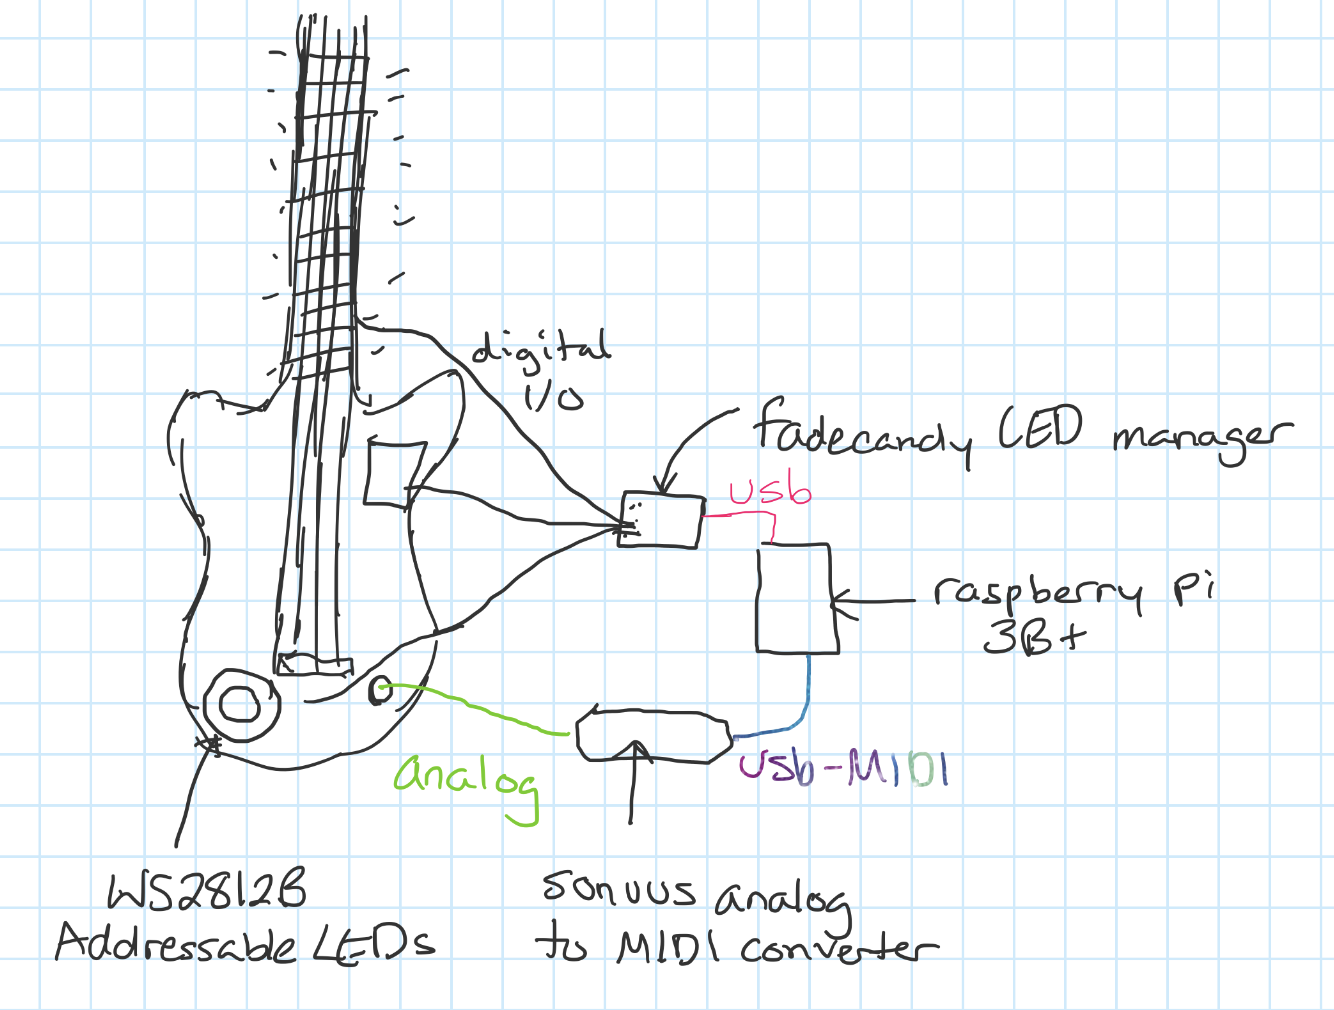 digital
I/O
fadecandy LED manager
usb
raspberry pi
3B+
analog
usb-MIDI
WS2812B
Addressable LEDs
sonuus analog
to MIDI converter